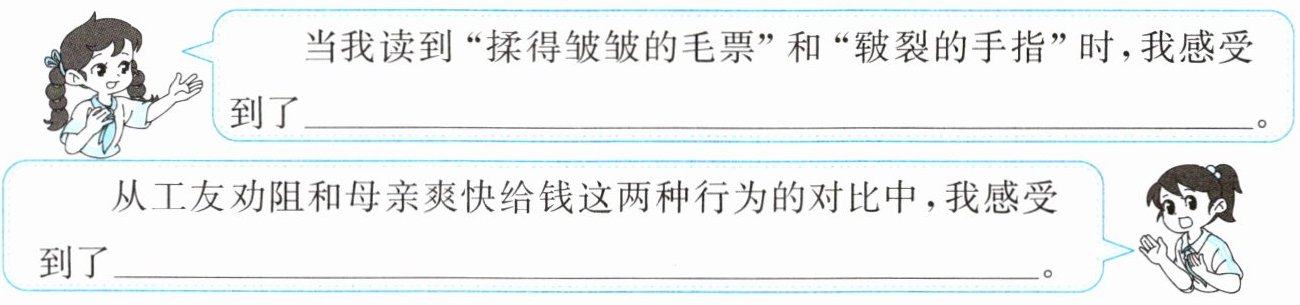 当我读到“揉得皱皱的毛票”和“皲裂的手指”时，我感受
到了＿＿＿＿＿＿＿＿＿＿＿＿＿＿＿＿＿＿＿＿。
从工友劝阻和母亲爽快给钱这两种行为的对比中，我感受
到了＿＿＿＿＿＿＿＿＿＿＿＿＿＿＿＿＿＿＿＿。